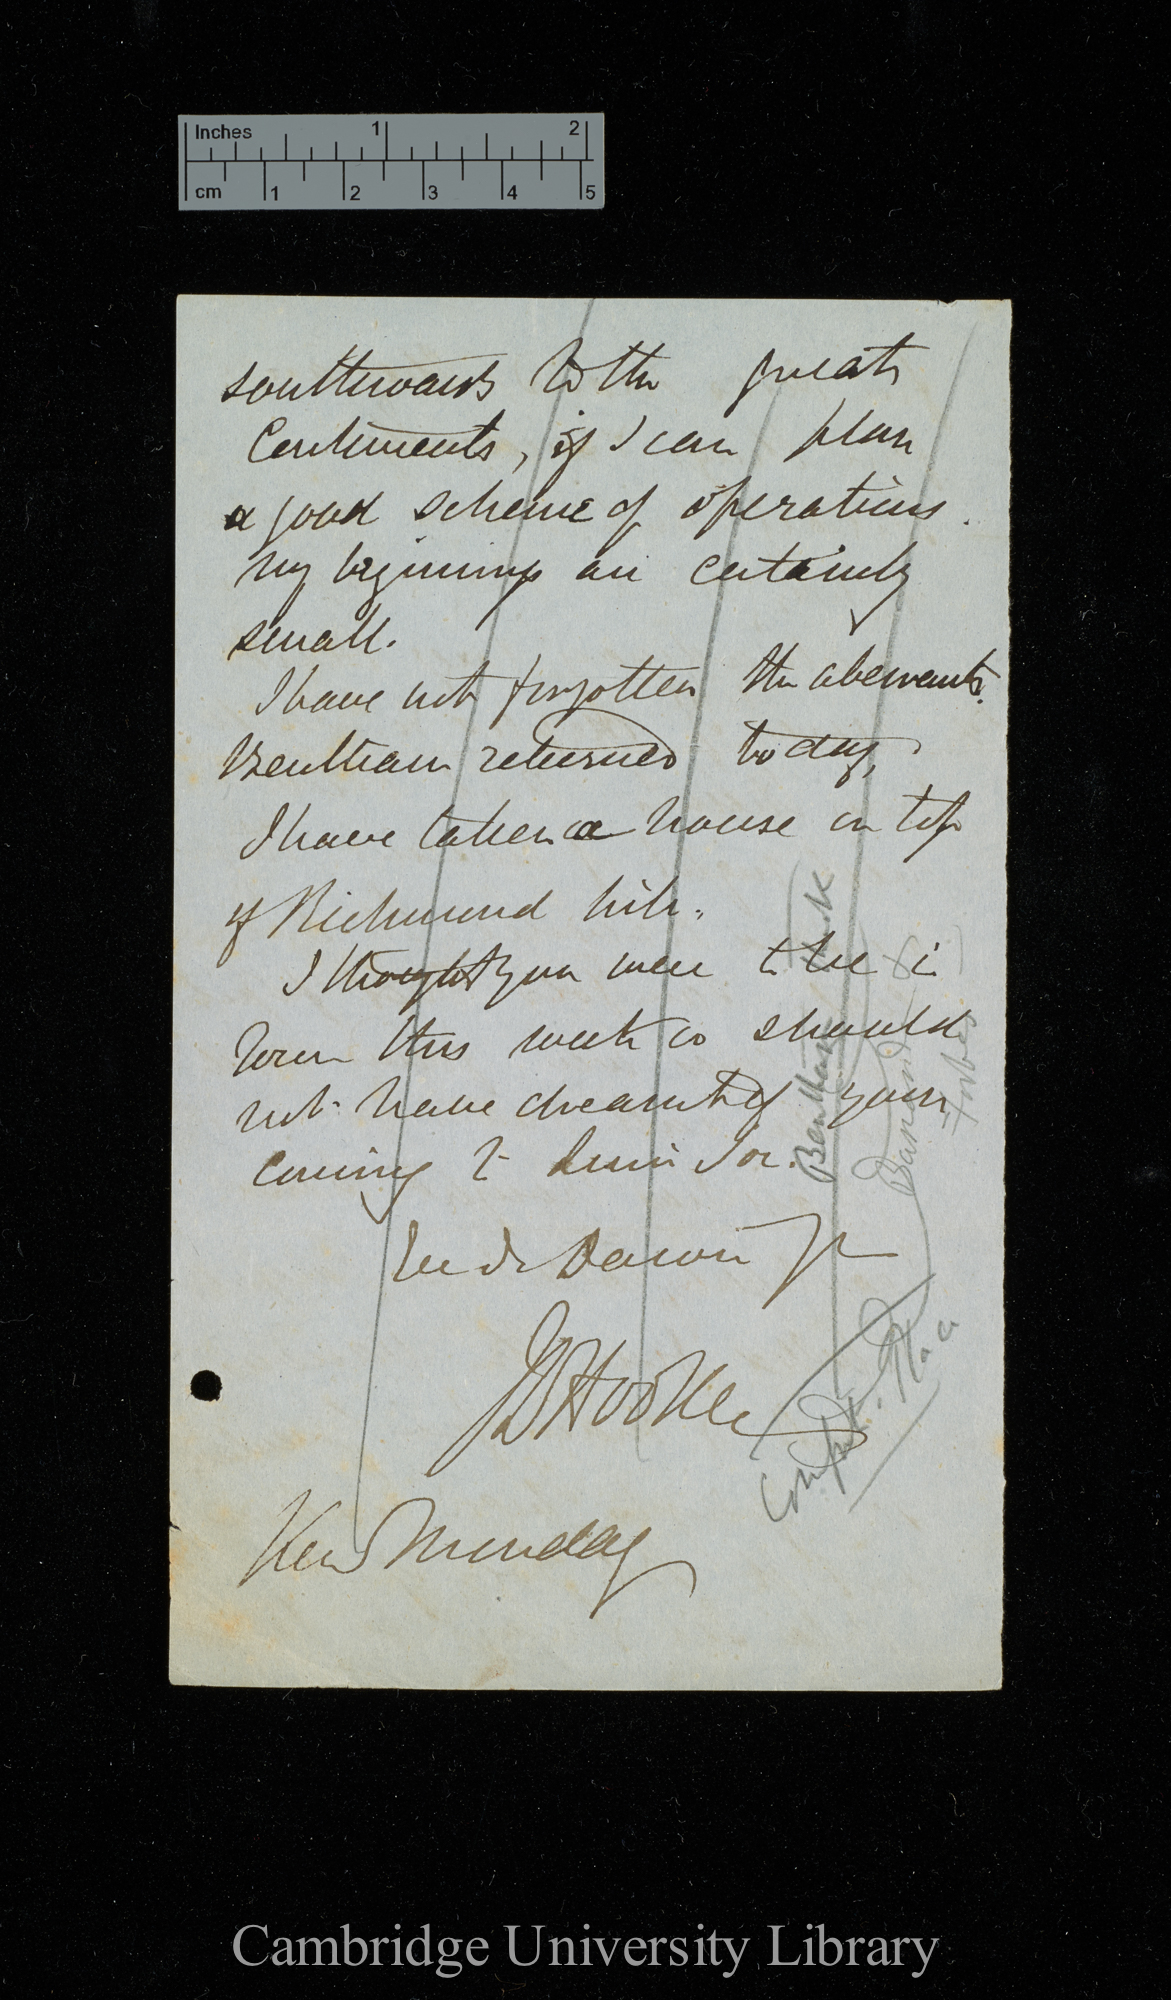 Inches 1 2
cm 1 2 3 4 5
southwards to the great
Continents, if I can plan
a good scheme of operations.
My beginnings are certainly
small.
I have not forgotten the aberrants.
Bentham returned today,
I have taken a house on top
of Richmond hill.
I thought you were to be in
town this week so should
not have dreamt of your
coming to
Ever dr Darwin Yrs
JDHooker
Kew Monday
Bentham
Forbes
Cambridge University Library